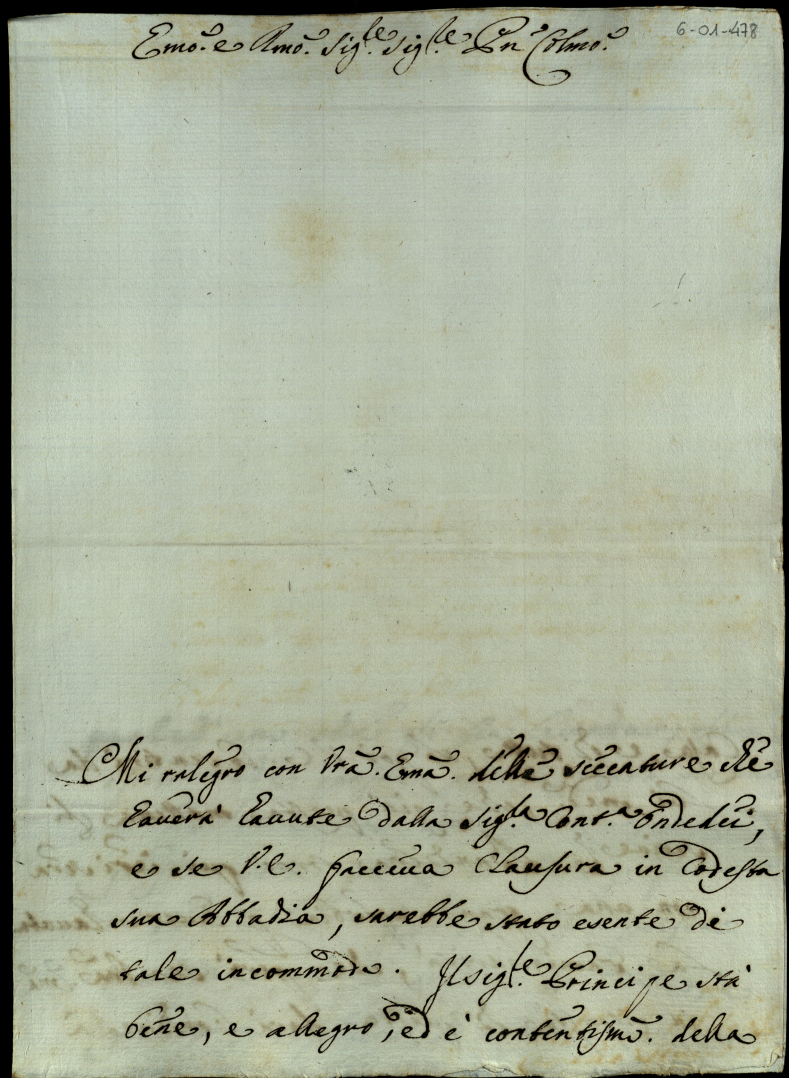 6-01-478
Emo. e Rmo. Sig.re Sig.re Pn Colmo.
Mi ralegro con Vra. Ema. delle seccature che
haverà haute dalla Sig.ra Cont.a
e se V.E. faceva Clausura in Codesta
sua Abbadia, sarebbe stato esente di
tale incommodo. Il sig.re Principe stà
bene, e allegro, ed è contentissmo. della